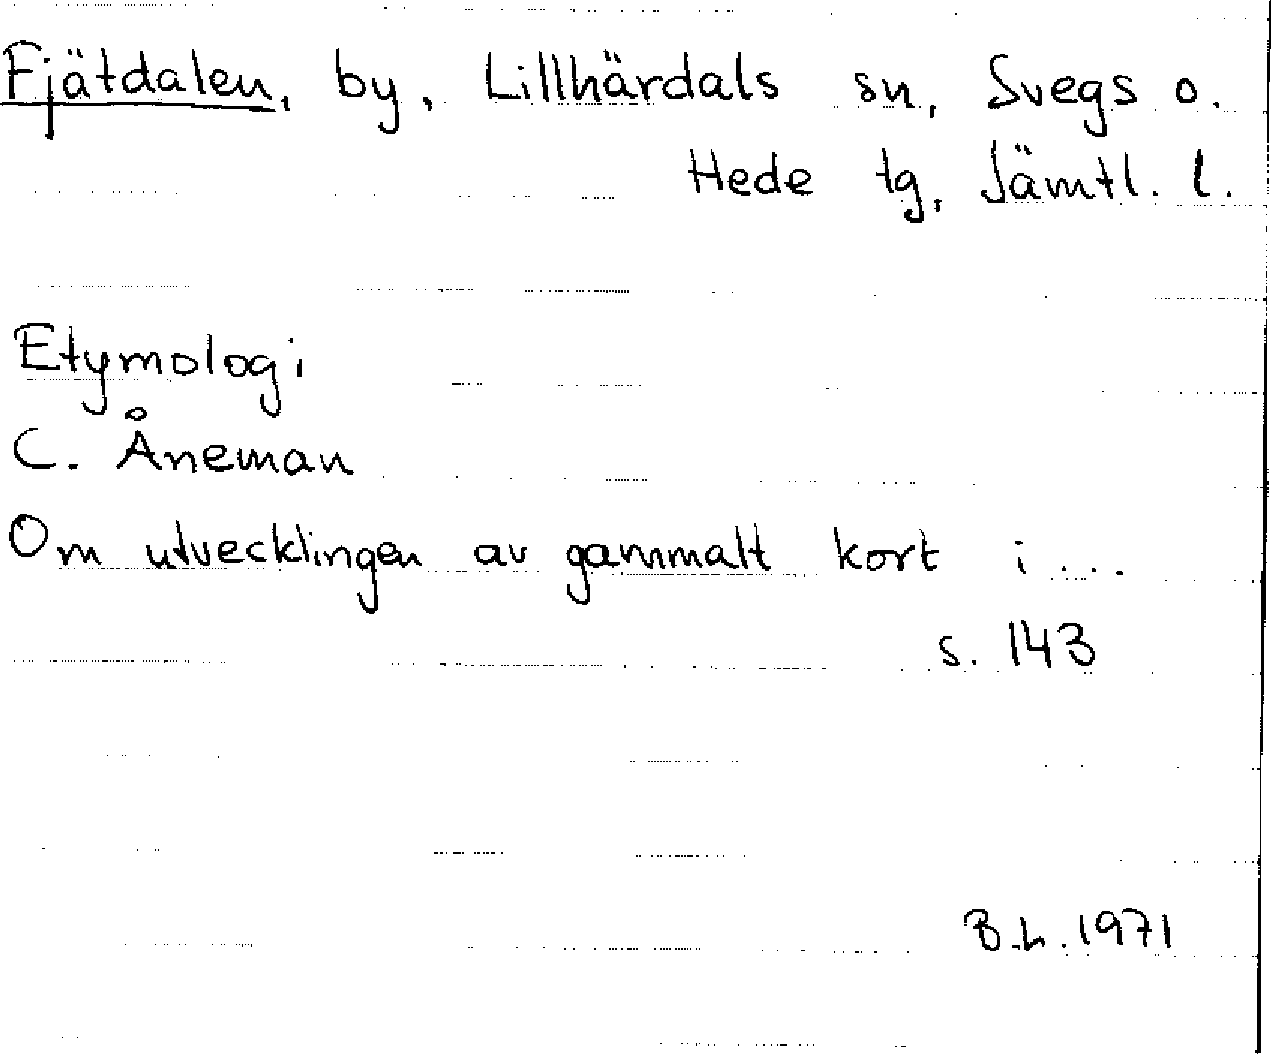 Fjätdalen, by, Lillhärdals sn, Svegs o.
Hede tg, Jämtl. l.
Etymologi
C. Åneman
Om utvecklingen av gammalt kort i ...
s. 143
B.L. 1971